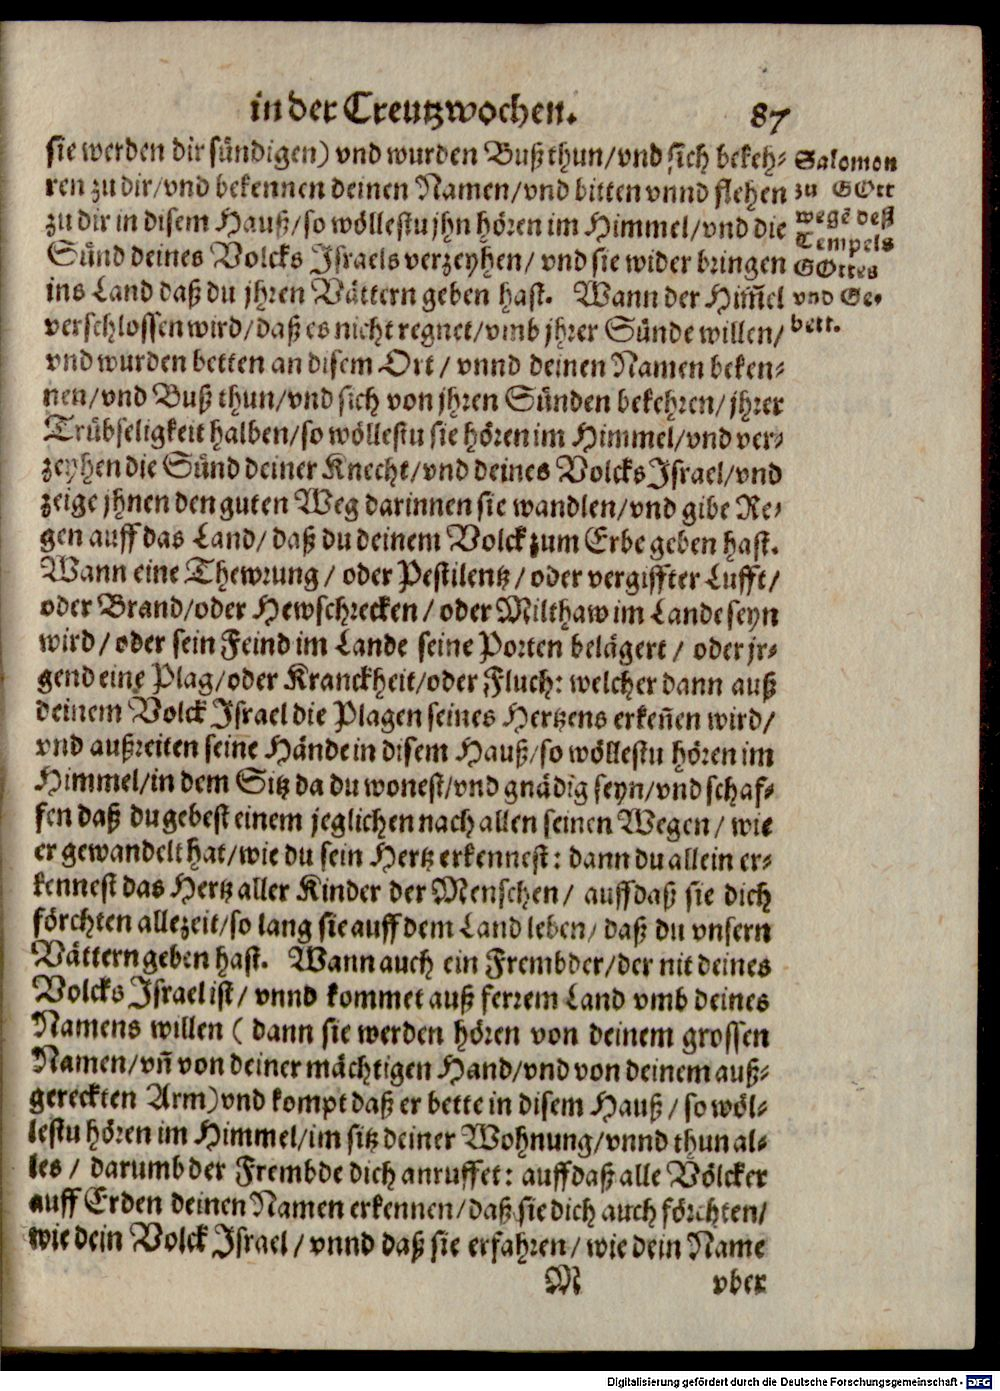 in der Creutzwochen. 87
sie werden dir sündigen) vnd wurden Buß thun/vnd sich bekeh-
ren zu dir/vnd bekennen deinen Namen/vnd bitten vnnd flehen
zu dir in disem Hauß/so wöllestu jhn hören im Himmel/vnd die
Sünd deines Volcks Israels verzeyhen/ vnd sie wider bringen
ins Land daß du jhren Vättern geben hast. Wann der Him̃el
verschlossen wird/daß es nicht regnet/vmb jhrer Sünde willen/
vnd wurden betten an disem Ort/ vnnd deinen Namen beken-
nen/vnd Buß thun/vnd sich von jhren Sünden bekehren/ jhrer
Trübseligkeit halben/so wöllestu sie hören im Himmel/vnd ver-
zeyhen die Sünd deiner Knecht/vnd deines Volcks Israel/vnd
zeige jhnen den guten Weg darinnen sie wandlen/vnd gibe Re-
gen auff das Land/ daß du deinem Volck zum Erbe geben hast.
Wann eine Thewrung/ oder Pestilentz/ oder vergiffter Lufft/
oder Brand/oder Hewschrecken/ oder Milthaw im Lande seyn
wird/ oder sein Feind im Lande seine Porten belägert/ oder jr-
gend eine Plag/oder Kranckheit/oder Fluch: welcher dann auß
deinem Volck Israel die Plagen seines Hertzens erkeñen wird/
vnd außreiten seine Hände in disem Hauß/so wöllestu hören im
Himmel/in dem Sitz da du wonest/vnd gnädig seyn/vnd schaf-
fen daß du gebest einem jeglichen nach allen seinen Wegen/ wie
er gewandelt hat/wie du sein Hertz erkennest: dann du allein er-
kennest das Hertz aller Kinder der Menschen/ auffdaß sie dich
förchten allezeit/so lang sie auff dem Land leben/ daß du vnsern
Vättern geben hast. Wann auch ein Frembder/der nit deines
Volcks Israel ist/ vnnd kommet auß ferrem Land vmb deines
Namens willen ( dann sie werden hören von deinem grossen
Namen/vñ von deiner mächtigen Hand/vnd von deinem auß-
gereckten Arm)vnd kompt daß er bette in disem Hauß/ so wöl-
lestu hören im Himmel/im sitz deiner Wohnung/vnnd thun al-
les/ darumb der Frembde dich anruffet: auffdaß alle Völcker
auff Erden deinen Namen erkennen/daß sie dich auch förchten/
wie dein Volck Israel/ vnnd daß sie erfahren/ wie dein Name
M vber
Salomon
zu GOtt
wegẽ deß
Tempels
GOttes
vnd Ge-
bett.
Digitalisierung gefördert durch die Deutsche Forschungsgemeinschaft - DFG